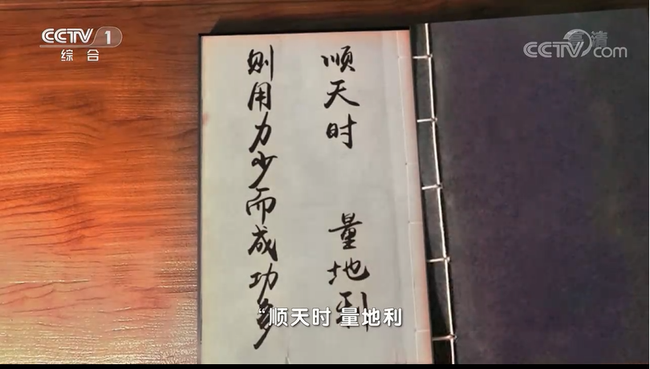 CCTV 1
综合
CCTV.com
清
顺天时 量地利
则用力少而成功多
“顺天时 量地利